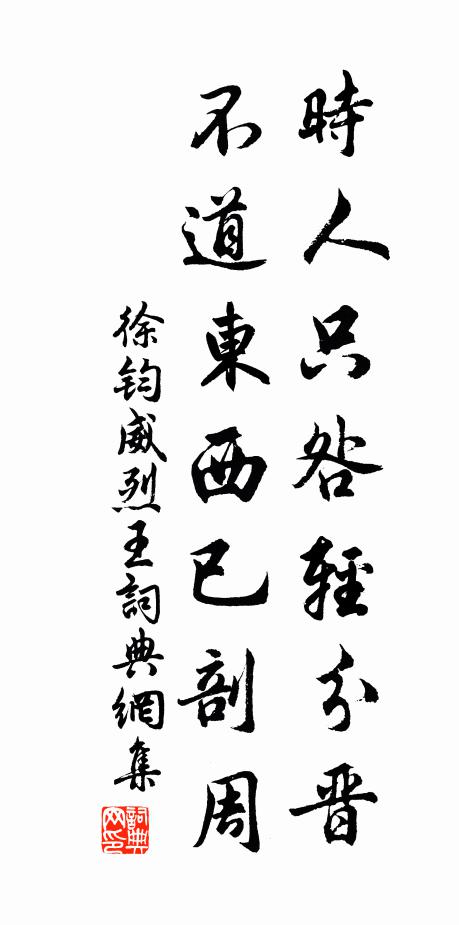 時人只咎輕分晋
不道東西已剖周
徐鈞威烈王詞典網集
詞典网印